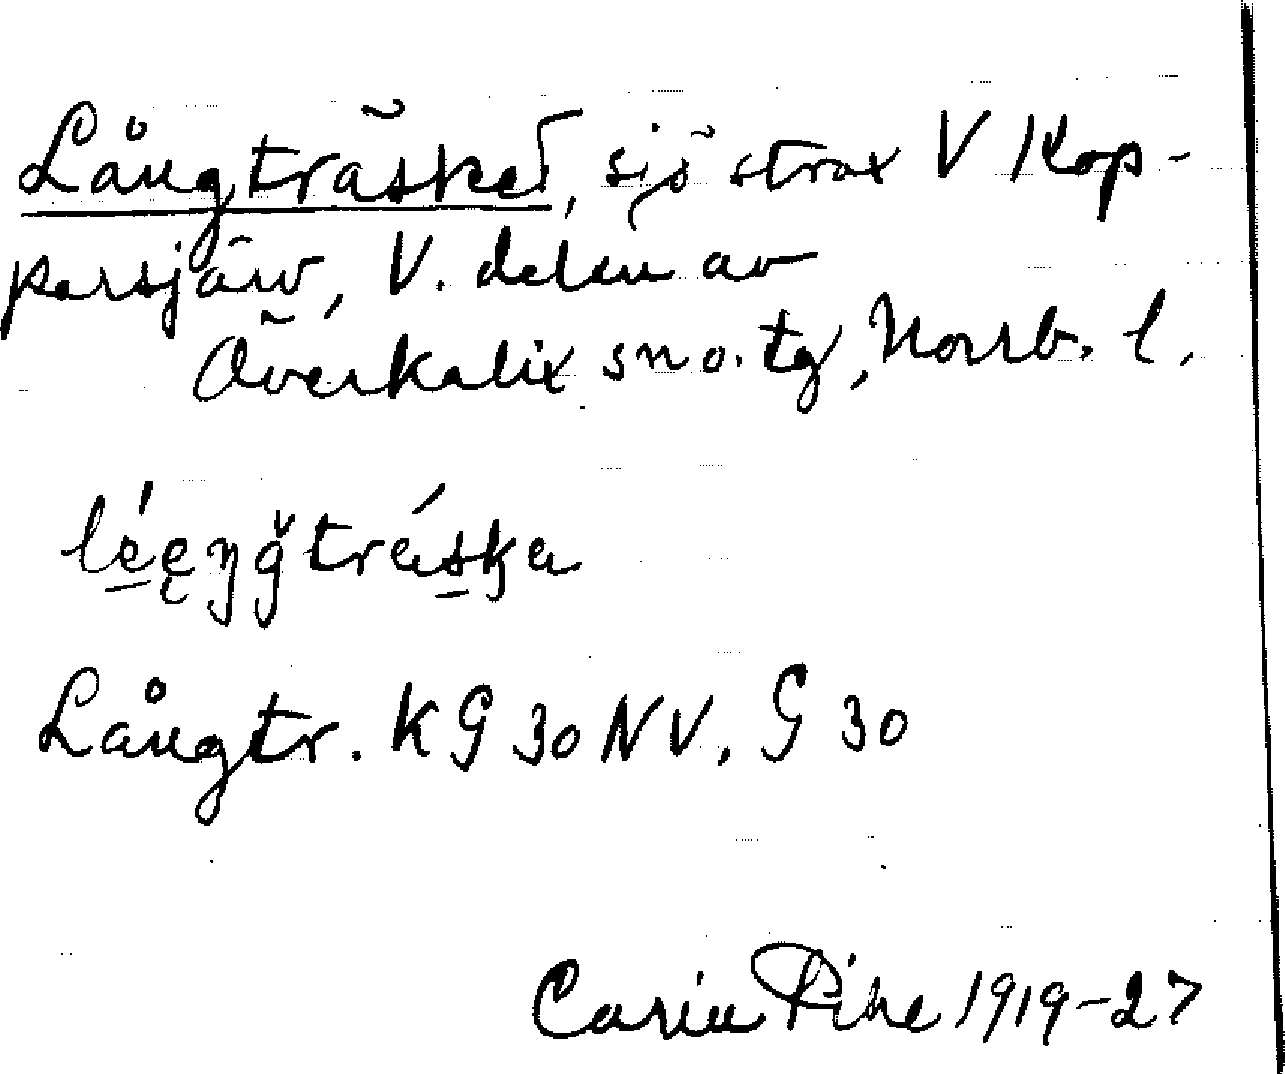 Långträsket, sjö strax V Kop-
parsjärv, V. delen av
Överkalix sn o. tg, Norrb. l.
léęŋğtráska
Långtr. KG 30 NV, G 30
Carin Pihl 1919-27